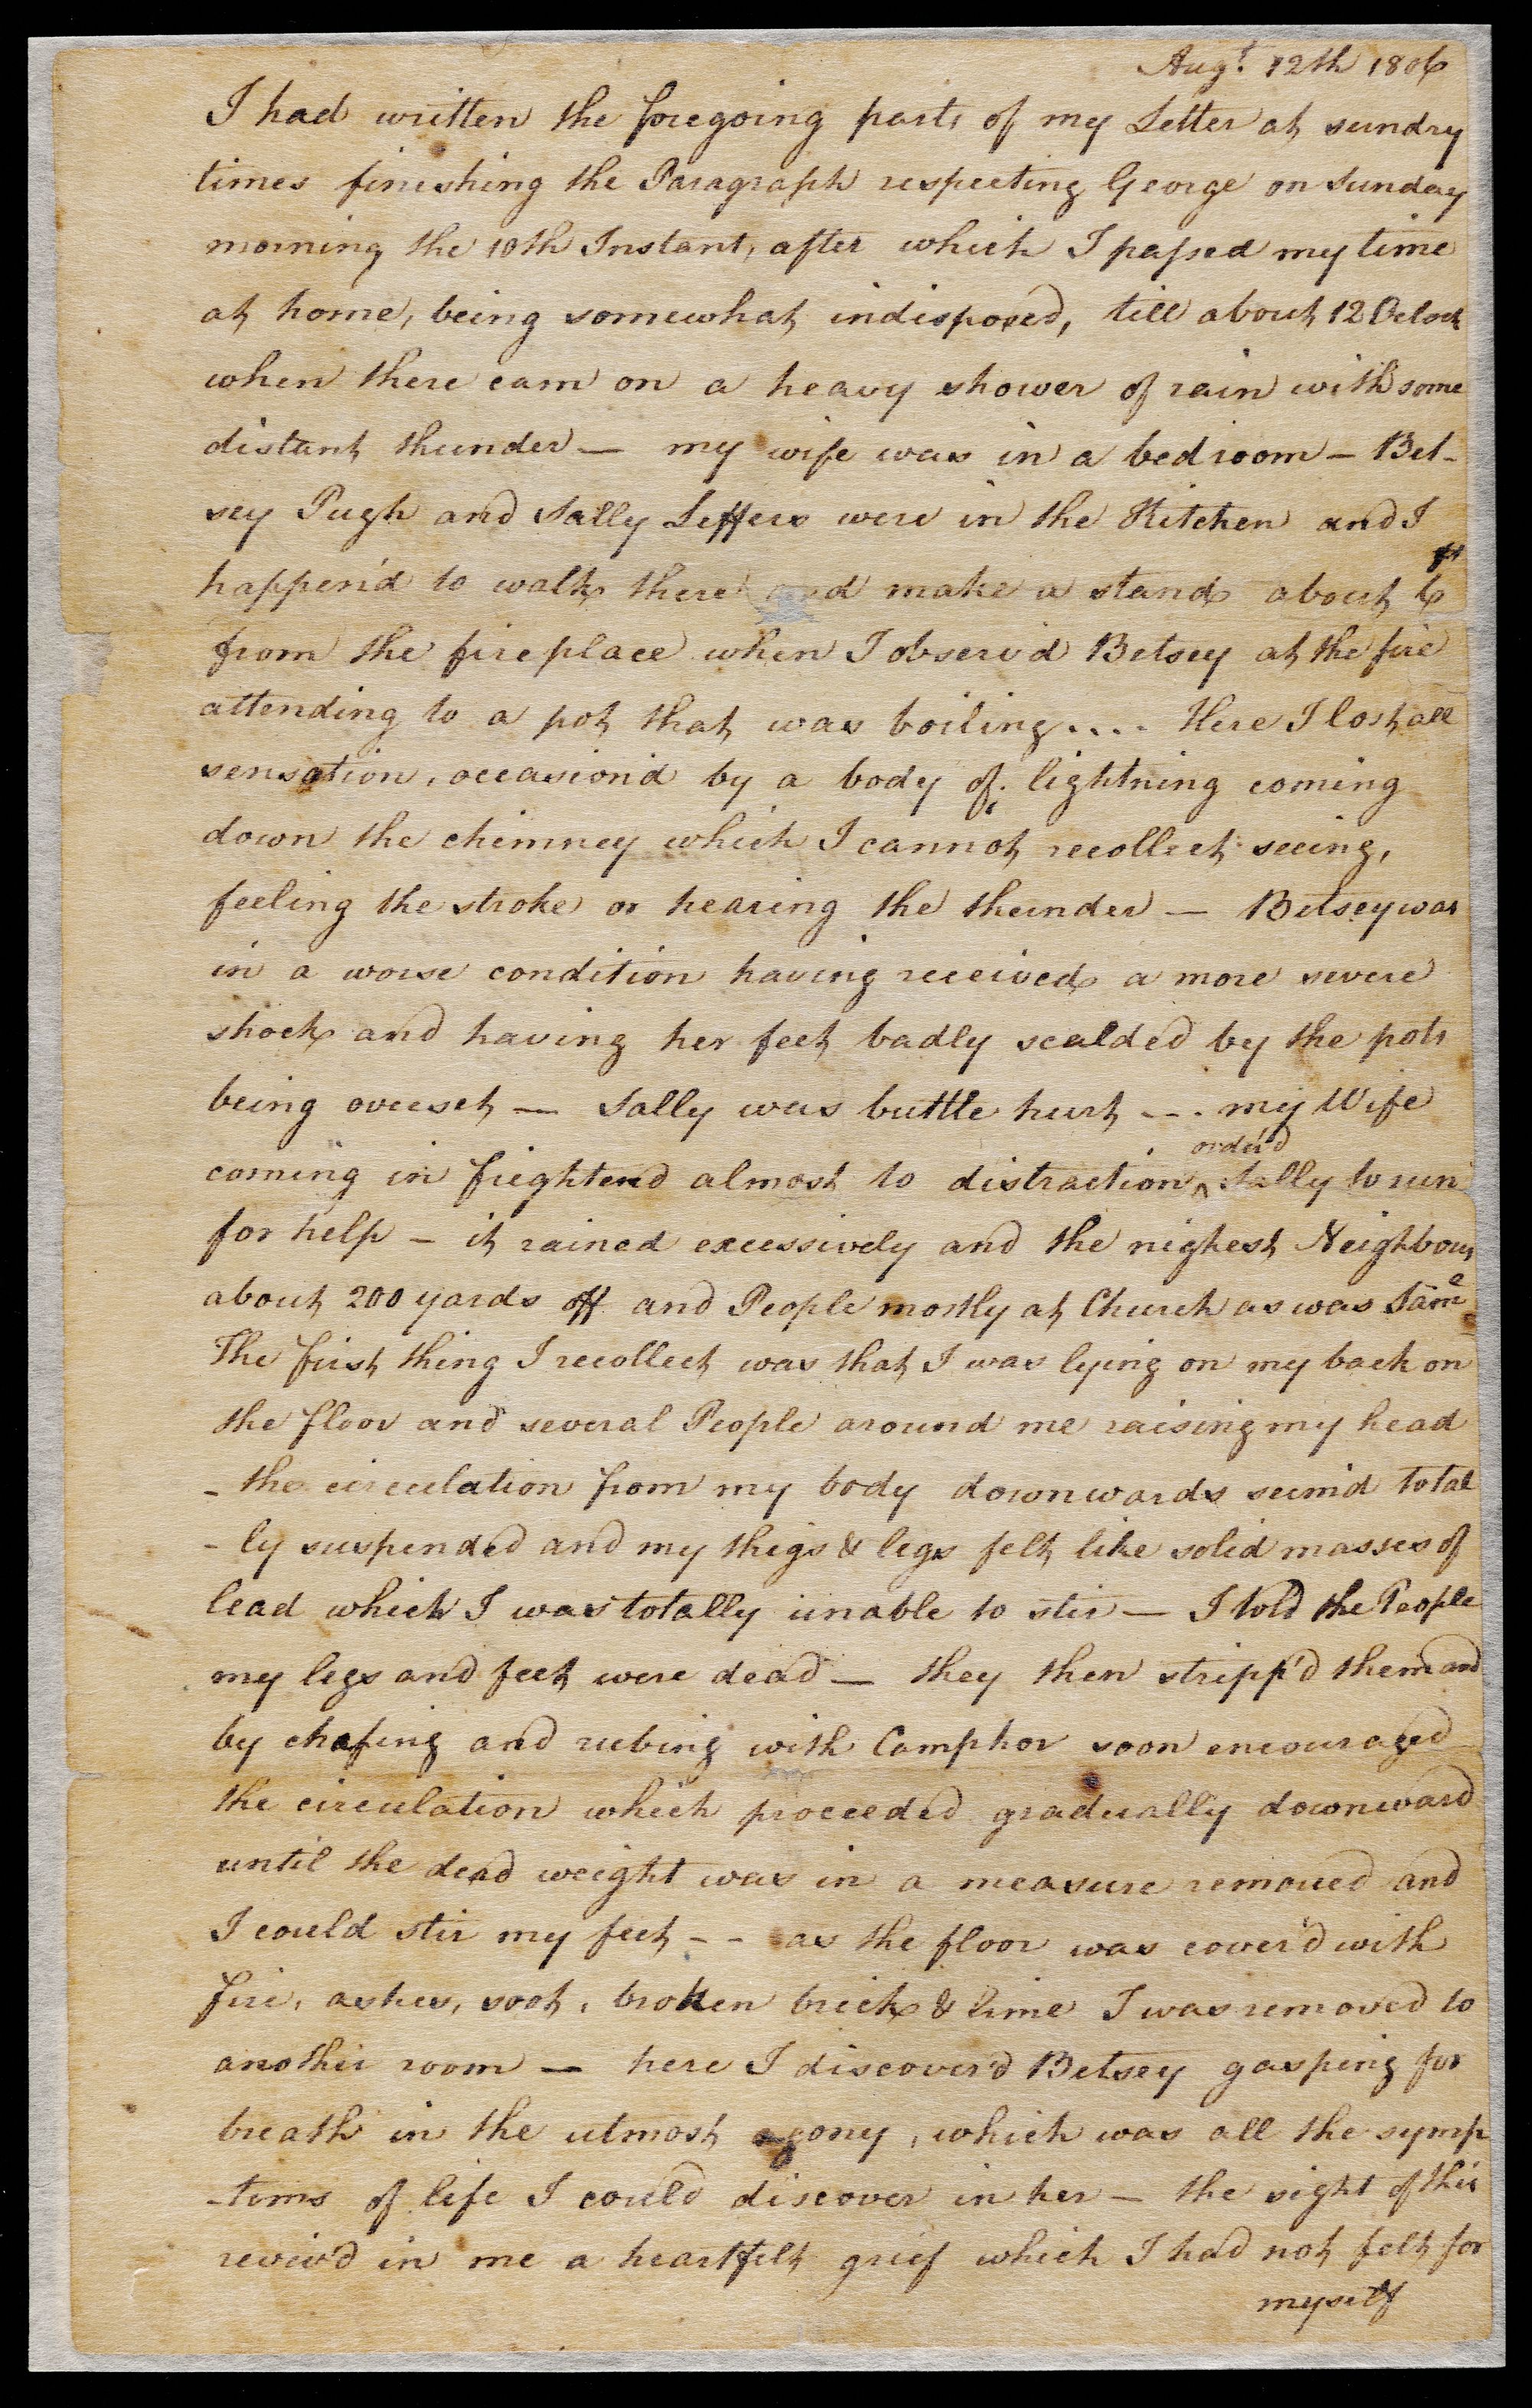 Augt. 12th 1806
I had written the foregoing parts of my Letter at sundry
times finishing the Paragraph respecting George on Sunday
morning the 10th Instant, after which I passed my time
at home, being somewhat indisposed, till about 12 Oclock
when there cam on a heavy shower of rain with some
distant thunder — my wife was in a bedroom — Bet-
sey Pugh and Sally Leffers were in the Kitchen and I
happen'd to walk there and make a stand about 6 ft
from the fireplace when I observ'd Betsey at the fire
attending to a pot that was boiling .... Here I lost all
sensation, occasion'd by a body of lightning coming
down the chimney which I cannot recollect seeing,
feeling the stroke or hearing the thunder — Betsey was
in a worse condition having received a more severe
shock and having her feet badly scalded by the pots
being overset — Sally was but little hurt --- my Wife
coming in frightend almost to distraction order'd Sally to run
for help — it rained excessively and the nighest Neighbour
about 200 yards off and People mostly at Church as was Same
The first thing I recollect was that I was lying on my back on
the floor and several People around me raising my head
- the circulation from my body downwards seem'd total
- ly suspended and my thigs & legs felt like solid masses of
lead which I was totally unable to stir — I told the People
my legs and feet were dead — they then stripp'd them and
by chafing and rubing with Camphor soon encouraged
the circulation which proceeded gradually downward
until the dead weight was in a measure removed and
I could stir my feet -- as the floor was cover'd with
fire, ashes, soot, broken brick & lime I was removed to
another room — here I discover'd Betsey gasping for
breath in the utmost agony, which was all the symp
-toms of life I could discover in her — the sight of this
reviv'd in me a heartfelt grief which I had not felt for
myself